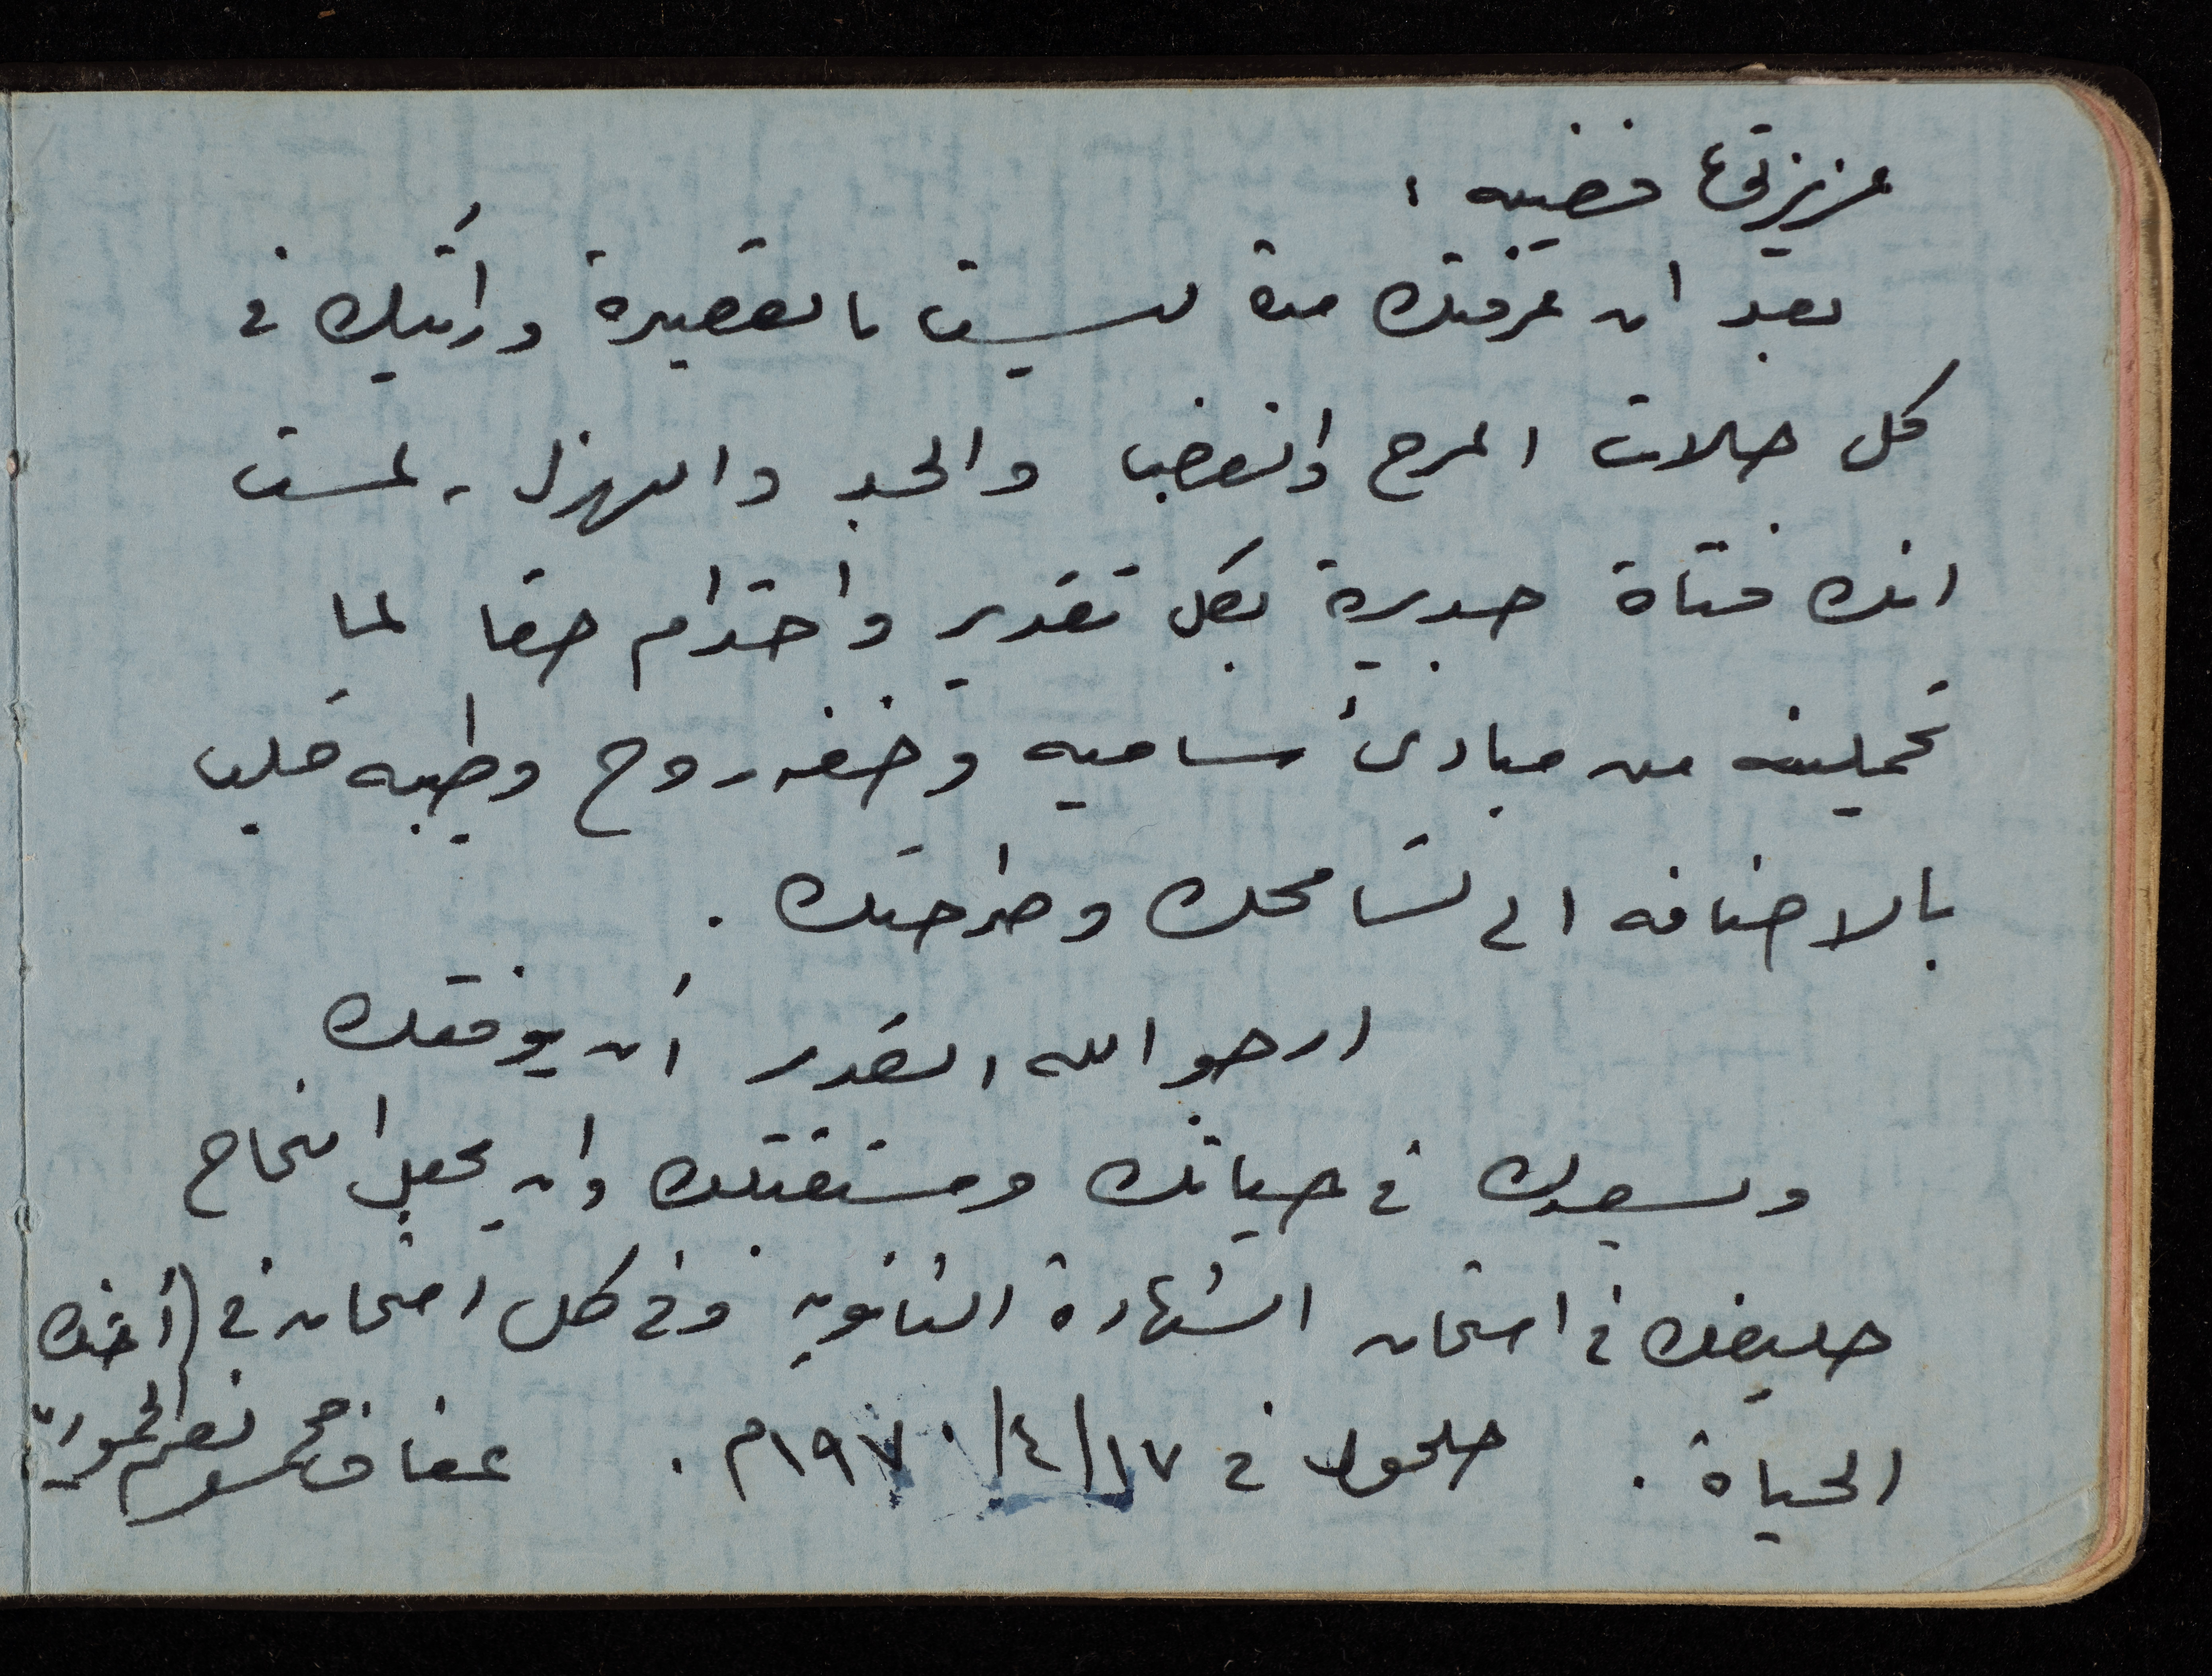 عزيزتي فضيه :
بعد ان عرفتك مدة ليست بالقصيرة ورأيتك في
كل حالات المرح والغضب والجد والهزل - لمست
انك فتاة جديرة بكل تقدير واحترام حقا لما
تحملينه من مبادئ ساميه وخفه روح وطيبه قلب
بالاضافه الى تسامحك وصراحتك .
ارجو الله القدير أن يوفقك
ويسعدك في حياتك ومستقبلك وان يجعل النجاح
حليفك في امتحان الشهادة الثانويه وفي كل امتحان في
الحياة . حلحول في ١٧/٤/١٩٧٠م .
أختك
عفاف